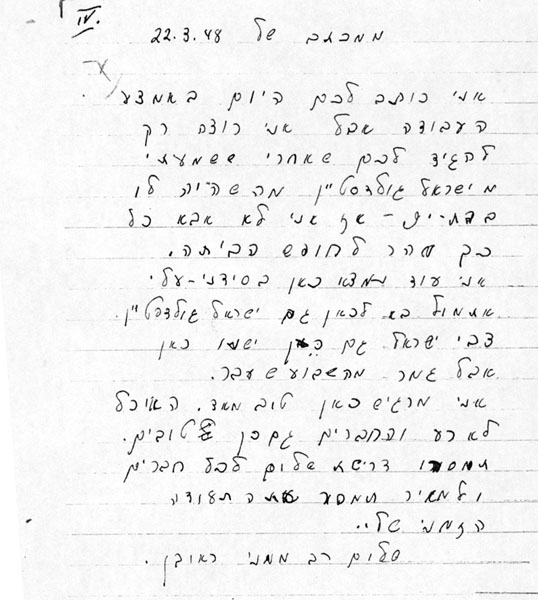 IV.
ממכתב של 22.3.48
אני כותב לכם היום באמצע
העבודה אבל אני רוצה רק
להגיד לכם שאחרי ששמעתי
מישראל גולדסטיין מה שהיה לו
בבת-ים - אז אני לא אבא כל
כך מהר לחופש הביתה.
אני עוד נמצא כאן בסידני-עלי
אתמול בא לכאן גם ישראל גולדסטיין.
צבי ישראל גם כן ישנו כאן
אבל גמר מהשבוע שעבר.
אני מרגיש כאן טוב מאד. האיכל
לא רע והחברים גם כן טובים.
תמסרו דרישת שלום לכל חברים
ולמאיר תמסר את תעודה
הזמני שלי.
שלום רב ממני ראובן.